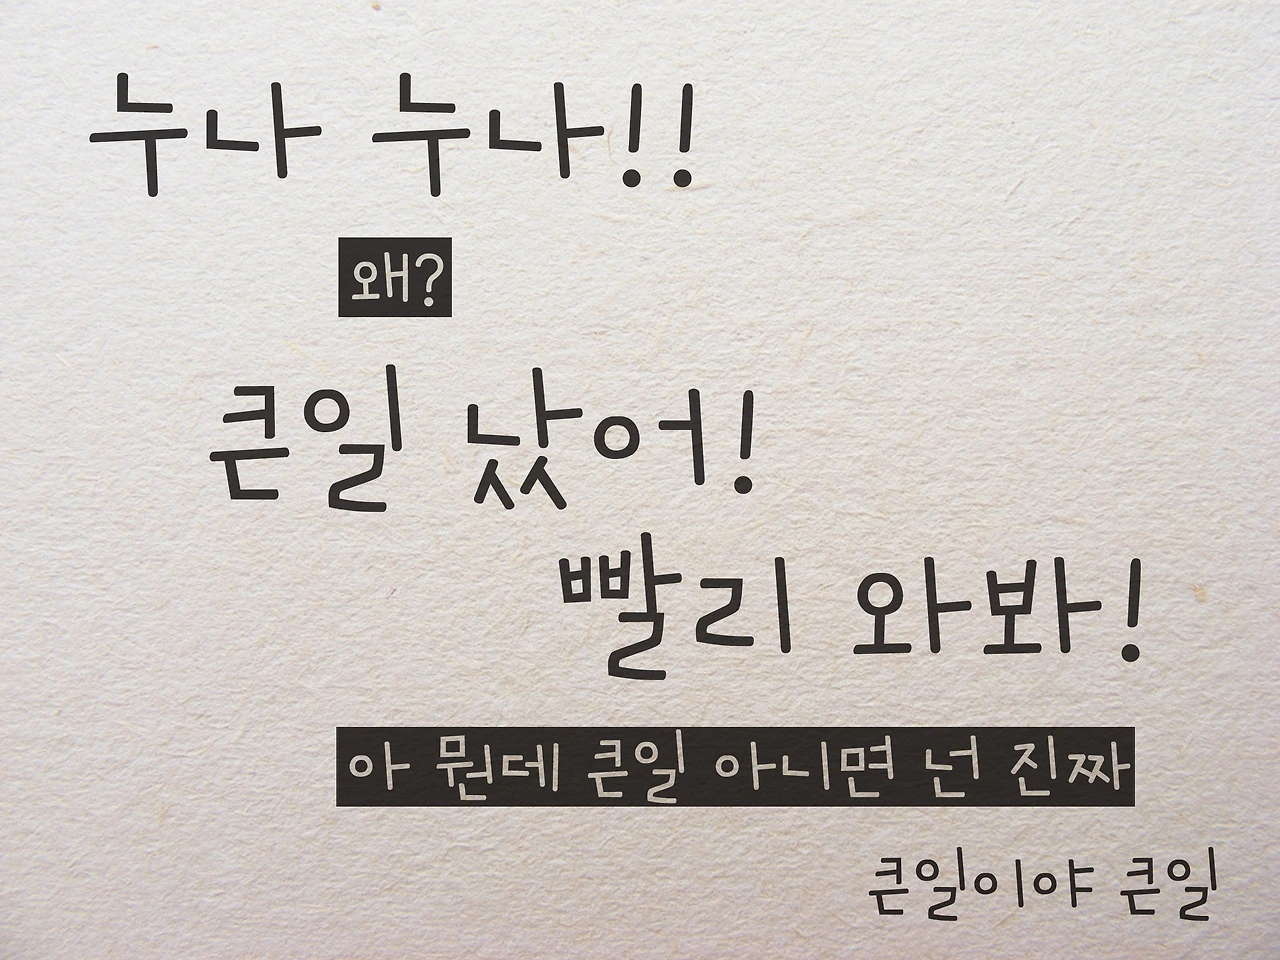 누나 누나!!
왜?
큰일 났어!
빨리 와봐!
아 뭔데 큰일 아니면 넌 진짜
큰일이야 큰일